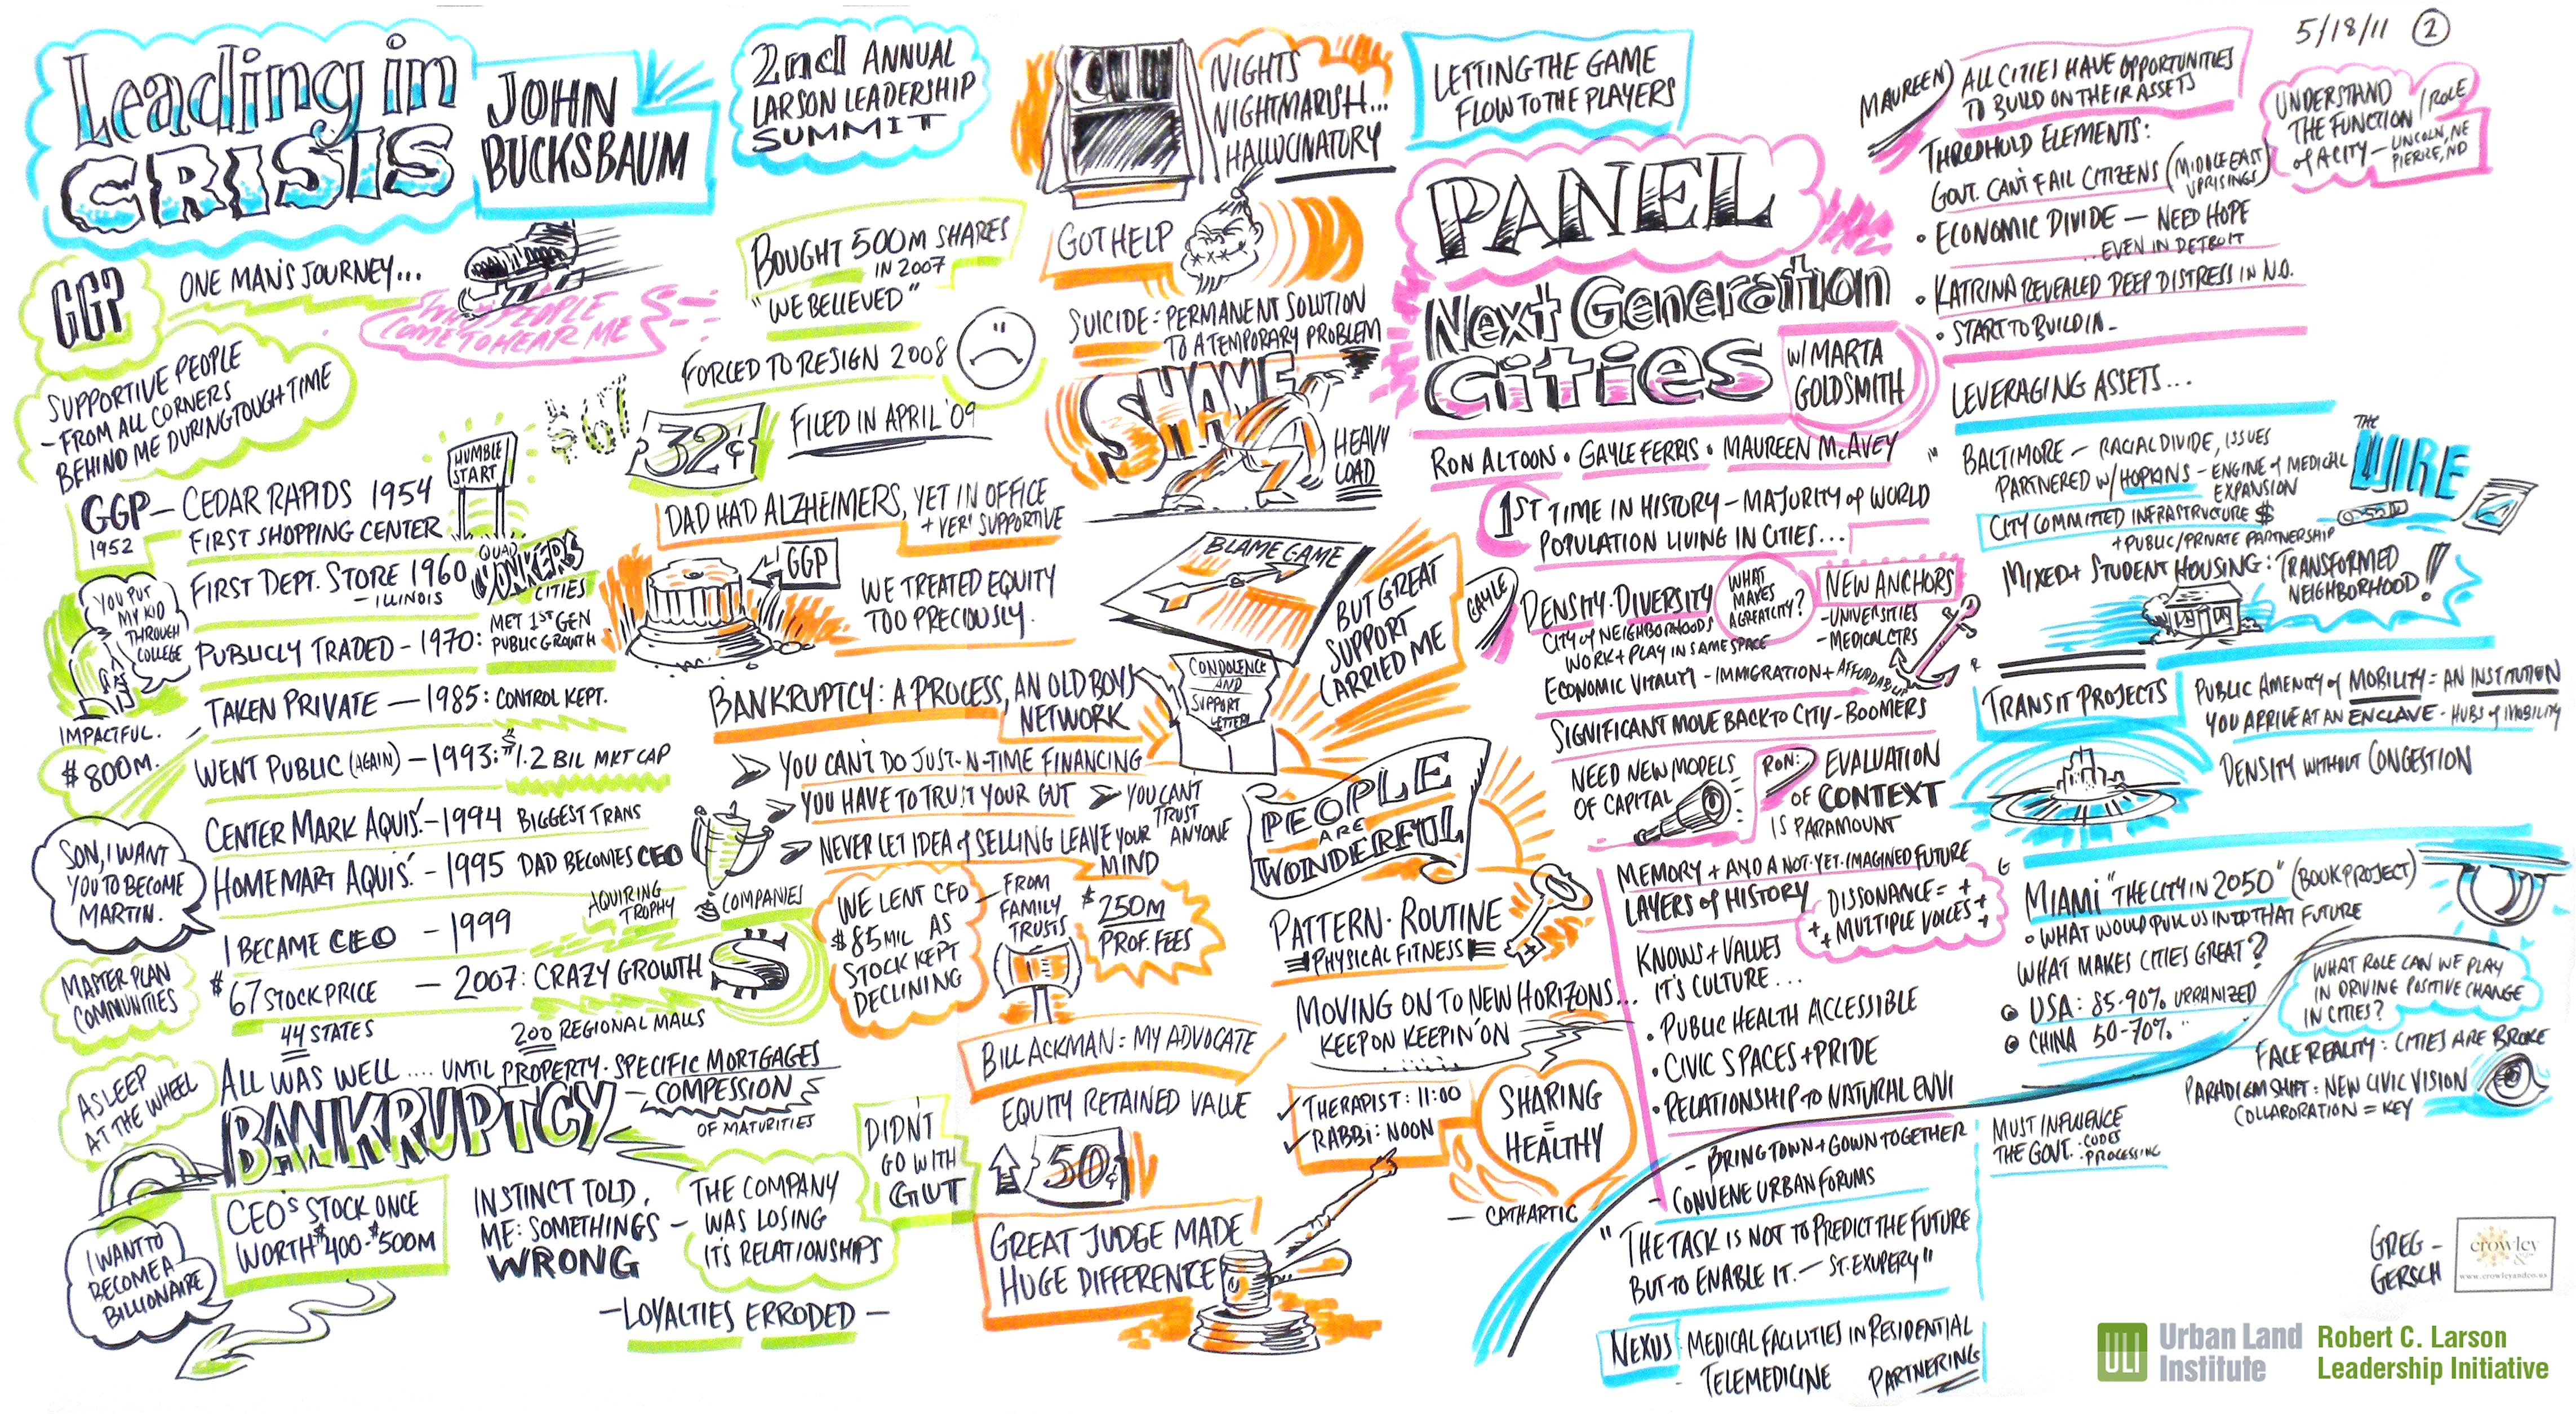 Leading in
CRISIS
JOHN
BUCKSBAUM
2nd ANNUAL
LARSON LEADERSHIP
SUMMIT
GGP
ONE MAN'S JOURNEY...
PEOPLE
COME TO HEAR ME
SUPPORTIVE PEOPLE
- FROM ALL CORNERS
BEHIND ME DURING TOUGH TIME
HUMBLE
START
GGP - CEDAR RAPIDS 1954
1952
FIRST SHOPPING CENTER
FIRST DEPT. STORE 1960
- ILLINOIS
QUAD
YONKERS
CITIES
YOU PUT
MY KID
THROUGH
COLLEGE
IMPACTFUL.
PUBLICLY TRADED - 1970:
MET 1ST GEN
PUBLIC GROWTH
TAKEN PRIVATE - 1985: CONTROL KEPT.
$800M.
WENT PUBLIC (AGAIN) - 1993: $1.2 BIL MKT CAP
CENTER MARK AQUIS. - 1994 BIGGEST TRANS
SON, I WANT
YOU TO BECOME
MARTIN.
HOMEMART AQUIS. - 1995 DAD BECOMES CEO
I BECAME CEO - 1999
AQUIRING
TROPHY
COMPANIES
MASTER PLAN
COMMUNITIES
$67 STOCK PRICE - 2007: CRAZY GROWTH
$
44 STATES
200 REGIONAL MALLS
ASLEEP
AT THE WHEEL
ALL WAS WELL .... UNTIL PROPERTY-SPECIFIC MORTGAGES
BANKRUPTCY
- COMPESSION
OF MATURITIES
I WANT TO
BECOME A
BILLIONAIRE
CEO'S STOCK ONCE
WORTH $400-$500M
INSTINCT TOLD
ME: SOMETHINGS -
WRONG
THE COMPANY
WAS LOSING
IT'S RELATIONSHIPS
DIDN'T
GO WITH
GUT
- LOYALTIES ERRODED -
BOUGHT 500M SHARES
IN 2007
"WE BELIEVED"
FORCED TO RESIGN 2008
$67
32¢
FILED IN APRIL '09
DAD HAD ALZHEIMERS, YET IN OFFICE
+ VERY SUPPORTIVE
GGP
WE TREATED EQUITY
TOO PRECIOUSLY.
BANKRUPTCY: A PROCESS, AN OLD BOYS
NETWORK
YOU CAN'T DO JUST-N-TIME FINANCING
YOU HAVE TO TRUST YOUR GUT
YOU CAN'T
TRUST
ANYONE
NEVER LET IDEA of SELLING LEAVE YOUR
MIND
WE LENT CFO
$85 MIL AS
STOCK KEPT
DECLINING
- FROM
FAMILY
TRUSTS
$250M
PROF. FEES
BILL ACKMAN = MY ADVOCATE
EQUITY RETAINED VALUE
50¢
GREAT JUDGE MADE
HUGE DIFFERENCE
NIGHTS
NIGHTMARISH...
HALLUCINATORY
GOT HELP
SUICIDE: PERMANENT SOLUTION
TO A TEMPORARY PROBLEM
SHAME
HEAVY
LOAD
BLAME GAME
BUT GREAT
SUPPORT
CARRIED ME
CONDOLENCE
AND
SUPPORT
LETTERS
PEOPLE
ARE
WONDERFUL
PATTERN · ROUTINE
PHYSICAL FITNESS
MOVING ON TO NEW HORIZONS...
KEEP ON KEEPIN' ON
✓ THERAPIST: 11:00
✓ RABBI: NOON
SHARING
=
HEALTHY
- CATHARTIC
LETTING THE GAME
FLOW TO THE PLAYERS
PANEL
Next Generation
Cities
W/ MARTA
GOLDSMITH
RON ALTOON · GAYLE FERRIS · MAUREEN McAVEY
1ST TIME IN HISTORY - MAJORITY of WORLD
POPULATION LIVING IN CITIES...
GAYLE
DENSITY · DIVERSITY
CITY of NEIGHBORHOODS
WORK + PLAY IN SAME SPACE
WHAT
MAKES
A GREAT CITY?
NEW ANCHORS
- UNIVERSITIES
- MEDICAL CTRS
ECONOMIC VITALITY - IMMIGRATION + AFFORDABLE
SIGNIFICANT MOVE BACK TO CITY - BOOMERS
NEED NEW MODELS
OF CAPITAL
RON:
EVALUATION
OF CONTEXT
IS PARAMOUNT
MEMORY + AND A NOT-YET-IMAGINED FUTURE
LAYERS of HISTORY
DISSONANCE = +
+ MULTIPLE VOICES +
KNOWS + VALUES
IT'S CULTURE...
· PUBLIC HEALTH ACCESSIBLE
· CIVIC SPACES + PRIDE
· RELATIONSHIP TO NATURAL ENVI
- BRING TOWN + GOWN TOGETHER
- CONVENE URBAN FORUMS
"THE TASK IS NOT TO PREDICT THE FUTURE
BUT TO ENABLE IT. - ST. EXUPERY"
NEXUS: MEDICAL FACILITIES IN RESIDENTIAL
- TELEMEDICINE PARTNERING
5/18/11 2
MAUREEN
ALL CITIES HAVE OPPORTUNITIES
TO BUILD ON THEIR ASSETS
THRESHOLD ELEMENTS:
GOVT. CAN'T FAIL CITIZENS (MIDDLE EAST
UPRISINGS)
UNDERSTAND
THE FUNCTION / ROLE
of A CITY - LINCOLN, NE
PIERRE, ND
· ECONOMIC DIVIDE - NEED HOPE
...EVEN IN DETROIT
· KATRINA REVEALED DEEP DISTRESS IN N.O.
· START TO BUILD IN -
LEVERAGING ASSETS...
BALTIMORE - RACIAL DIVIDE, ISSUES
THE
WIRE
PARTNERED W/ HOPKINS - ENGINE of MEDICAL
EXPANSION
CITY COMMITTED INFRASTRUCTURE $
+ PUBLIC/PRIVATE PARTNERSHIP
MIXED + STUDENT HOUSING: TRANSFORMED
NEIGHBORHOOD!!
TRANSIT PROJECTS
PUBLIC AMENITY of MOBILITY = AN INSTITUTION
YOU ARRIVE AT AN ENCLAVE - HUBS of MOBILITY
DENSITY WITHOUT CONGESTION
MIAMI "THE CITY IN 2050" (BOOK PROJECT)
· WHAT WOULD PULL US INTO THAT FUTURE
WHAT MAKES CITIES GREAT?
USA: 85-90% URBANIZED
CHINA 50-70% "
WHAT ROLE CAN WE PLAY
IN DRIVING POSITIVE CHANGE
IN CITIES?
FACE REALITY: CITIES ARE BROKE
PARADIGM SHIFT: NEW CIVIC VISION
COLLABORATION = KEY
MUST INFLUENCE
THE GOVT. - CODES
- PROCESSING
GREG -
GERSCH
crowley
&
www.crowleyandco.us
ULI Urban Land
Institute
Robert C. Larson
Leadership Initiative